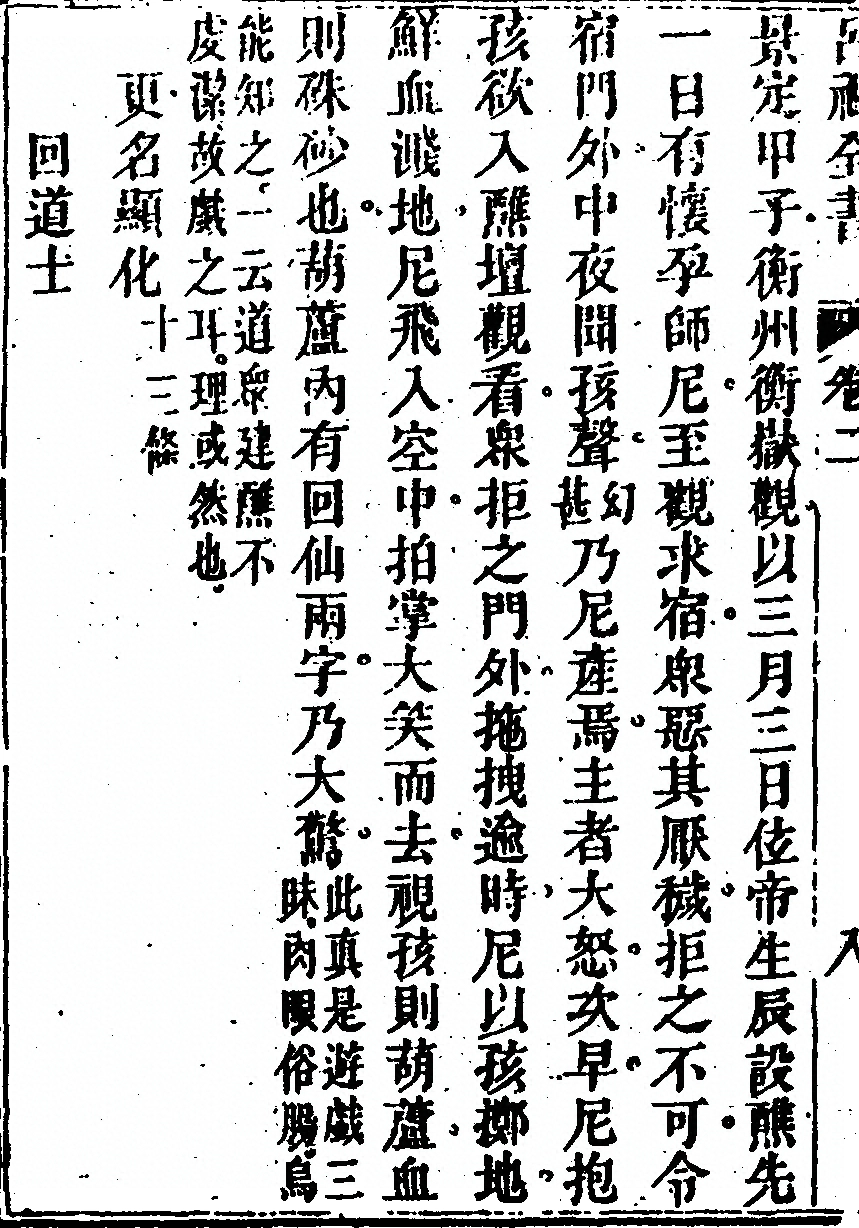 呂祖全書 卷二 八
景定甲子衡州衡嶽觀以三月三日位帝生辰設醮先
一日有懷孕師尼至觀求宿衆惡其厭穢拒之不可令
宿門外中夜聞孩聲幻甚乃尼產焉主者大怒次早尼抱
孩欲入醮壇觀看衆拒之門外拖拽逾時尼以孩擲地
鮮血濺地尼飛入空中拍掌大笑而去視孩則葫蘆血
則硃砂也葫蘆內有回仙兩字乃大驚此真是遊戲三昧肉眼俗腸烏
能知之一云道衆建醮不虔潔故戲之耳理或然也
更名顯化十三條
回道士